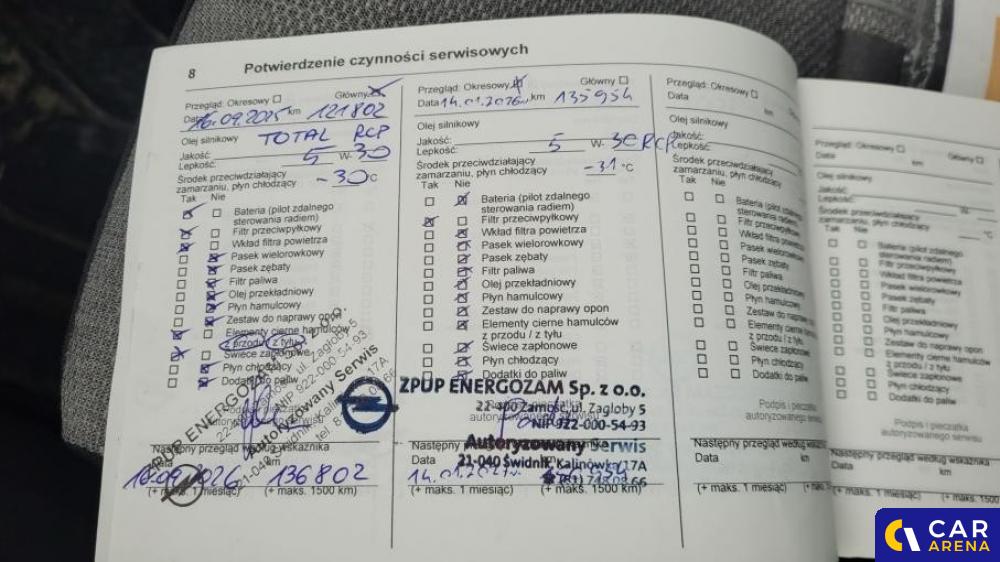 8 Potwierdzenie czynności serwisowych
Przegląd: Okresowy Główny
Data 16.09.2025 km 121802
Olej silnikowy TOTAL RCP
Jakość:
Lepkość: 5 W- 30
Środek przeciwdziałający
zamarzaniu, płyn chłodzący -30 °C
Tak Nie
Bateria (pilot zdalnego
sterowania radiem)
Filtr przeciwpyłkowy
Wkład filtra powietrza
Pasek wielorowkowy
Pasek zębaty
Filtr paliwa
Olej przekładniowy
Płyn hamulcowy
Zestaw do naprawy opon
Elementy cierne hamulców
z przodu / z tyłu
Świece zapłonowe
Płyn chłodzący
Dodatki do paliw
ZPUP ENERGOZAM Sp. z o.o.
NIP 922-000-54-93
Autoryzowany Serwis
Następny przegląd według wskaźnika
Data km
16.09.2026 136802
(+ maks. 1 miesiąc) (+ maks. 1500 km)
Przegląd: Okresowy Główny
Data 14.01.2026 km 135954
Olej silnikowy
Jakość:
Lepkość: 5 W- 30 RCP
Środek przeciwdziałający
zamarzaniu, płyn chłodzący -31 °C
Tak Nie
Bateria (pilot zdalnego
sterowania radiem)
Filtr przeciwpyłkowy
Wkład filtra powietrza
Pasek wielorowkowy
Pasek zębaty
Filtr paliwa
Olej przekładniowy
Płyn hamulcowy
Zestaw do naprawy opon
Elementy cierne hamulców
z przodu / z tyłu
Świece zapłonowe
Płyn chłodzący
Dodatki do paliw
ZPUP ENERGOZAM Sp. z o.o.
22-400 Zamość, ul. Zagłoby 5
NIP 922-000-54-93
Autoryzowany Serwis
21-040 Świdnik, Kalinówka 17A
Następny
Data
(+ maks. 1 miesiąc) (+ maks. 1500 km)
Przegląd: Okresowy Główny
Data km
Olej silnikowy
Jakość:
Lepkość:
Środek przeciwdziałający
zamarzaniu, płyn chłodzący
Tak Nie
Bateria (pilot
sterowania radiem)
Filtr przeciwpyłkowy
Wkład filtra powietrza
Pasek wielorowkowy
Pasek zębaty
Filtr paliwa
Olej przekładniowy
Płyn hamulcowy
Zestaw do naprawy opon
Elementy cierne hamulców
z przodu / z tyłu
Świece zapłonowe
Płyn chłodzący
Dodatki do paliw
Podpis i pieczątka
autoryzowanego serwisu
Następny przegląd według wskaźnika
Data km
(+ maks. 1 miesiąc) (+ maks. 1500 km)
Przegląd: Okresowy Główny
Data km
Olej silnikowy
Jakość:
Lepkość: W-
Środek przeciwdziałający
zamarzaniu, płyn chłodzący °C
Tak Nie
Bateria (pilot zdalnego
sterowania radiem)
Filtr przeciwpyłkowy
Wkład filtra powietrza
Pasek wielorowkowy
Pasek zębaty
Filtr paliwa
Olej przekładniowy
Płyn hamulcowy
Zestaw do naprawy opon
Elementy cierne hamulców
z przodu / z tyłu
Świece zapłonowe
Płyn chłodzący
Dodatki do paliw
Podpis i pieczątka
autoryzowanego serwisu
Następny przegląd według wskaźnika
Data km
(+ maks. 1 miesiąc) (+ maks. 1500
CAR
ARENA